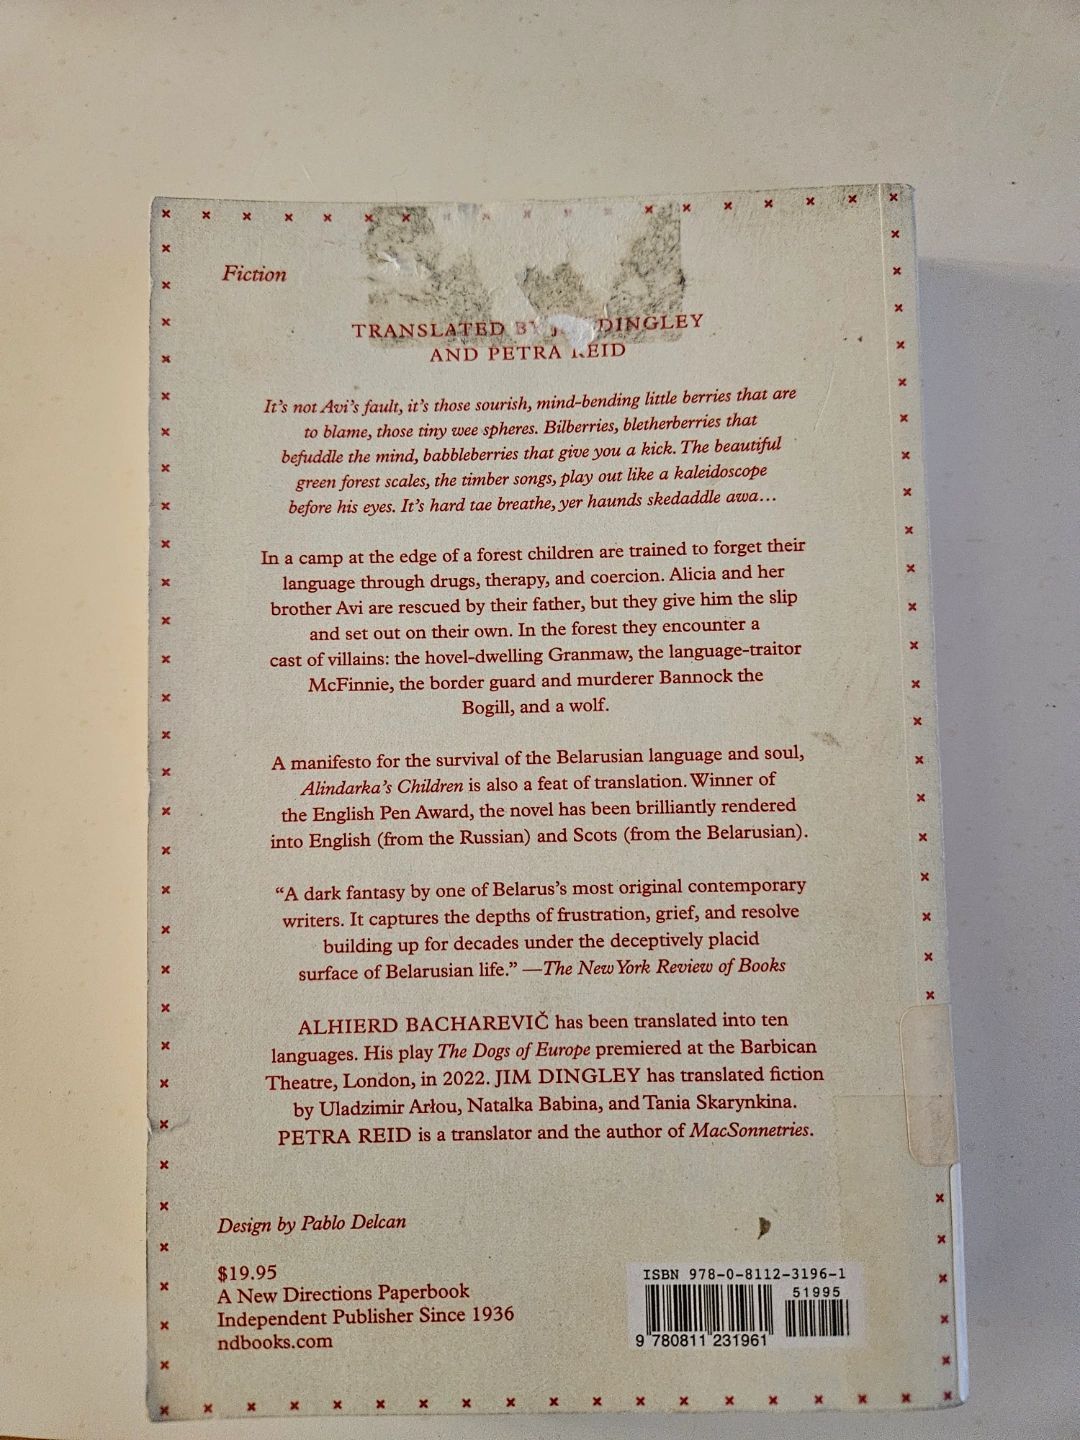 Fiction
TRANSLATED BY DINGLEY
AND PETRA REID
It's not Avi's fault, it's those sourish, mind-bending little berries that are
to blame, those tiny wee spheres. Bilberries, bletherberries that
befuddle the mind, babbleberries that give you a kick. The beautiful
green forest scales, the timber songs, play out like a kaleidoscope
before his eyes. It's hard tae breathe, yer haunds skedaddle awa…
In a camp at the edge of a forest children are trained to forget their
language through drugs, therapy, and coercion. Alicia and her
brother Avi are rescued by their father, but they give him the slip
and set out on their own. In the forest they encounter a
cast of villains: the hovel-dwelling Granmaw, the language-traitor
McFinnie, the border guard and murderer Bannock the
Bogill, and a wolf.
A manifesto for the survival of the Belarusian language and soul,
Alindarka's Children is also a feat of translation. Winner of
the English Pen Award, the novel has been brilliantly rendered
into English (from the Russian) and Scots (from the Belarusian).
“A dark fantasy by one of Belarus's most original contemporary
writers. It captures the depths of frustration, grief, and resolve
building up for decades under the deceptively placid
surface of Belarusian life.” —The New York Review of Books
ALHIERD BACHAREVIČ has been translated into ten
languages. His play The Dogs of Europe premiered at the Barbican
Theatre, London, in 2022. JIM DINGLEY has translated fiction
by Uladzimir Arłou, Natalka Babina, and Tania Skarynkina.
PETRA REID is a translator and the author of MacSonnetries.
Design by Pablo Delcan
$19.95
A New Directions Paperbook
Independent Publisher Since 1936
ndbooks.com
ISBN 978-0-8112-3196-1
51995
9 780811 231961